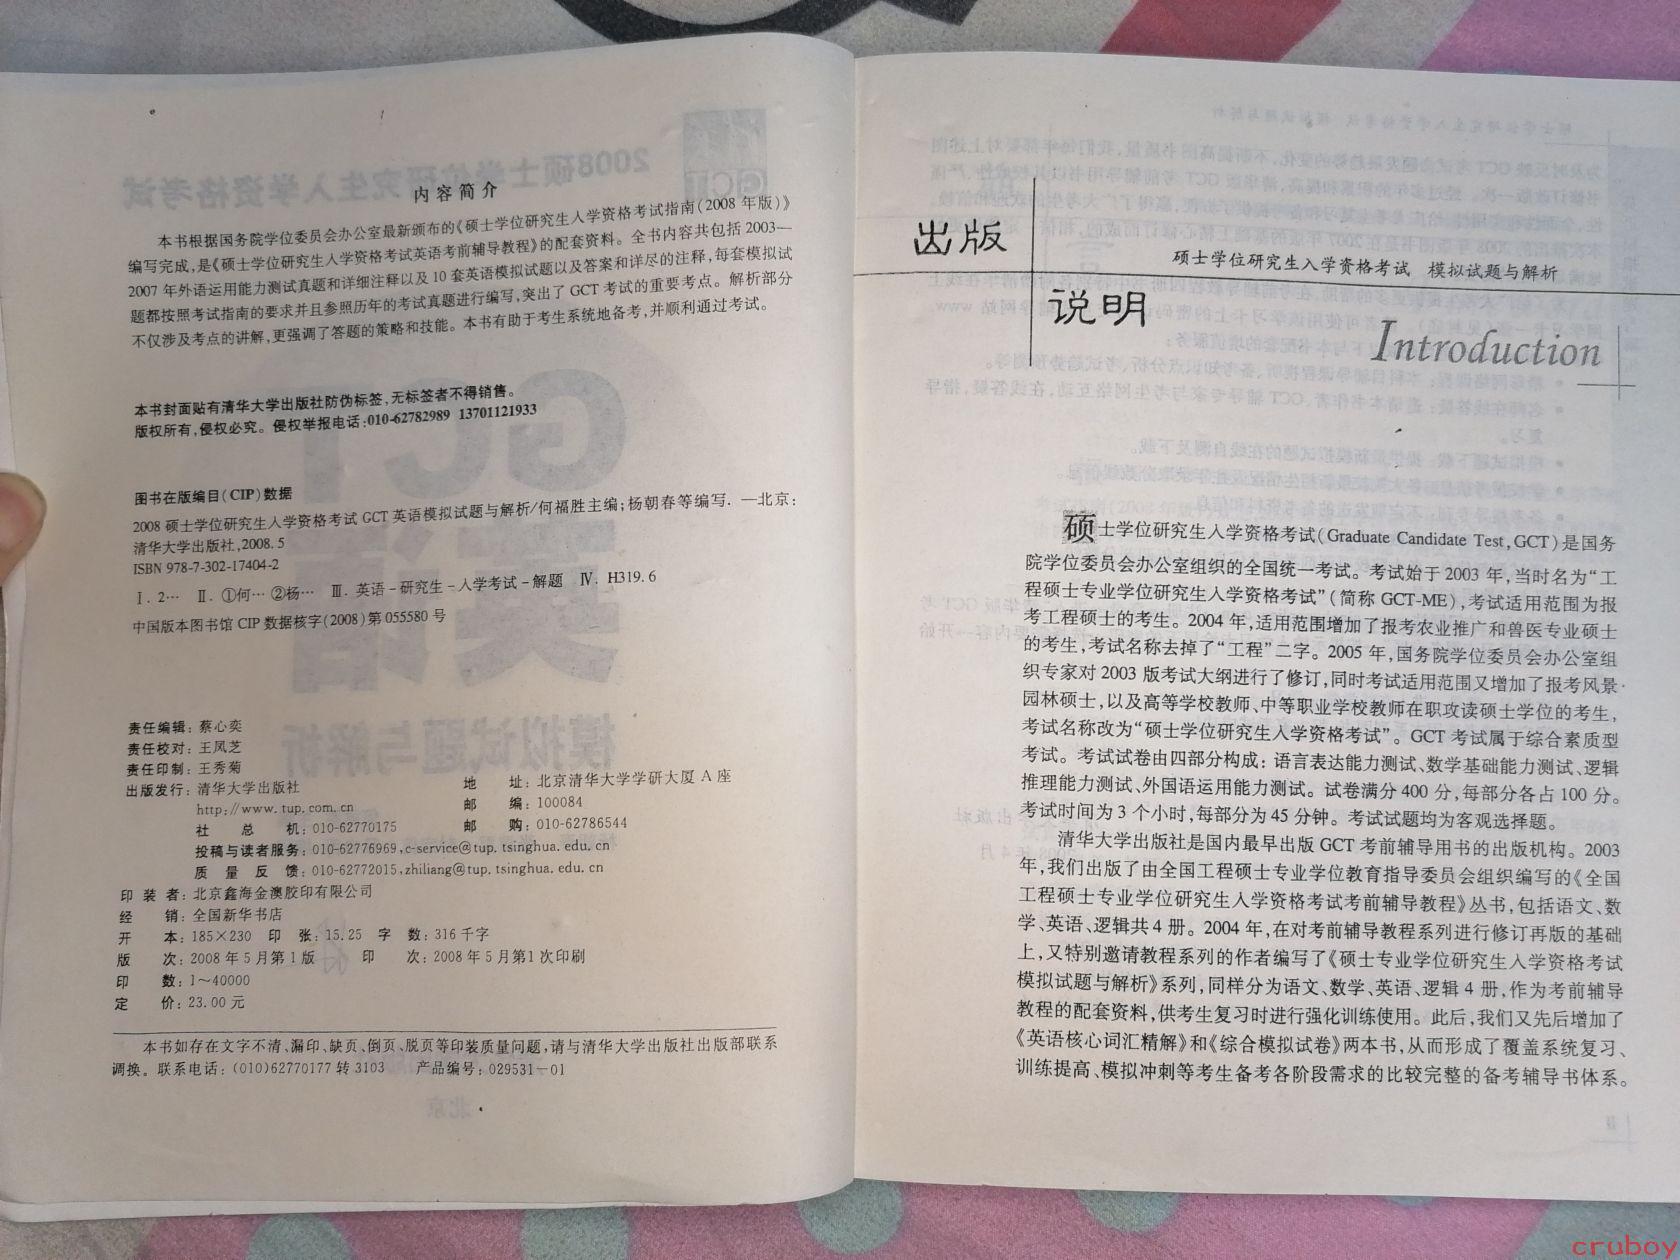 内容简介
本书根据国务院学位委员会办公室最新颁布的《硕士学位研究生入学资格考试指南(2008年版)》
编写完成,是《硕士学位研究生入学资格考试英语考前辅导教程》的配套资料。全书内容共包括2003—
2007年外语运用能力测试真题和详细注释以及10套英语模拟试题以及答案和详尽的注释,每套模拟试
题都按照考试指南的要求并且参照历年的考试真题进行编写,突出了GCT考试的重要考点。解析部分
不仅涉及考点的讲解,更强调了答题的策略和技能。本书有助于考生系统地备考,并顺利通过考试。
本书封面贴有清华大学出版社防伪标签,无标签者不得销售。
版权所有,侵权必究。侵权举报电话:010-62782989 13701121933
图书在版编目(CIP)数据
2008硕士学位研究生入学资格考试GCT英语模拟试题与解析/何福胜主编;杨朝春等编写. —北京:
清华大学出版社,2008.5
ISBN 978-7-302-17404-2
Ⅰ. 2… Ⅱ. ①何… ②杨… Ⅲ. 英语-研究生-入学考试-解题 Ⅳ. H319.6
中国版本图书馆CIP数据核字(2008)第055580号
责任编辑: 蔡心奕
责任校对: 王凤芝
责任印制: 王秀菊
出版发行: 清华大学出版社 地 址: 北京清华大学学研大厦A座
http://www.tup.com.cn 邮 编: 100084
社 总 机: 010-62770175 邮 购: 010-62786544
投稿与读者服务: 010-62776969,c-service@tup.tsinghua.edu.cn
质 量 反 馈: 010-62772015,zhiliang@tup.tsinghua.edu.cn
印 装 者: 北京鑫海金澳胶印有限公司
经 销: 全国新华书店
开 本: 185×230 印 张: 15.25 字 数: 316千字
版 次: 2008年5月第1版 印 次: 2008年5月第1次印刷
印 数: 1~40000
定 价: 23.00元
本书如存在文字不清、漏印、缺页、倒页、脱页等印装质量问题,请与清华大学出版社出版部联系
调换。联系电话: (010)62770177转3103 产品编号: 029531-01
出版
说明
硕士学位研究生入学资格考试 模拟试题与解析
Introduction
硕士学位研究生入学资格考试(Graduate Candidate Test,GCT)是国务
院学位委员会办公室组织的全国统一考试。考试始于2003年,当时名为“工
程硕士专业学位研究生入学资格考试”(简称GCT-ME),考试适用范围为报
考工程硕士的考生。2004年,适用范围增加了报考农业推广和兽医专业硕士
的考生,考试名称去掉了“工程”二字。2005年,国务院学位委员会办公室组
织专家对2003版考试大纲进行了修订,同时考试适用范围又增加了报考风景
园林硕士,以及高等学校教师、中等职业学校教师在职攻读硕士学位的考生,
考试名称改为“硕士学位研究生入学资格考试”。GCT考试属于综合素质型
考试。考试试卷由四部分构成: 语言表达能力测试、数学基础能力测试、逻辑
推理能力测试、外国语运用能力测试。试卷满分400分,每部分各占100分。
考试时间为3个小时,每部分为45分钟。考试试题均为客观选择题。
清华大学出版社是国内最早出版GCT考前辅导用书的出版机构。2003
年,我们出版了由全国工程硕士专业学位教育指导委员会组织编写的《全国
工程硕士专业学位研究生入学资格考试考前辅导教程》丛书,包括语文、数
学、英语、逻辑共4册。2004年,在对考前辅导教程系列进行修订再版的基础
上,又特别邀请教程系列的作者编写了《硕士专业学位研究生入学资格考试
模拟试题与解析》系列,同样分为语文、数学、英语、逻辑4册,作为考前辅导
教程的配套资料,供考生复习时进行强化训练使用。此后,我们又先后增加了
《英语核心词汇精解》和《综合模拟试卷》两本书,从而形成了覆盖系统复习、
训练提高、模拟冲刺等考生备考各阶段需求的比较完整的备考辅导书体系。
cruboy